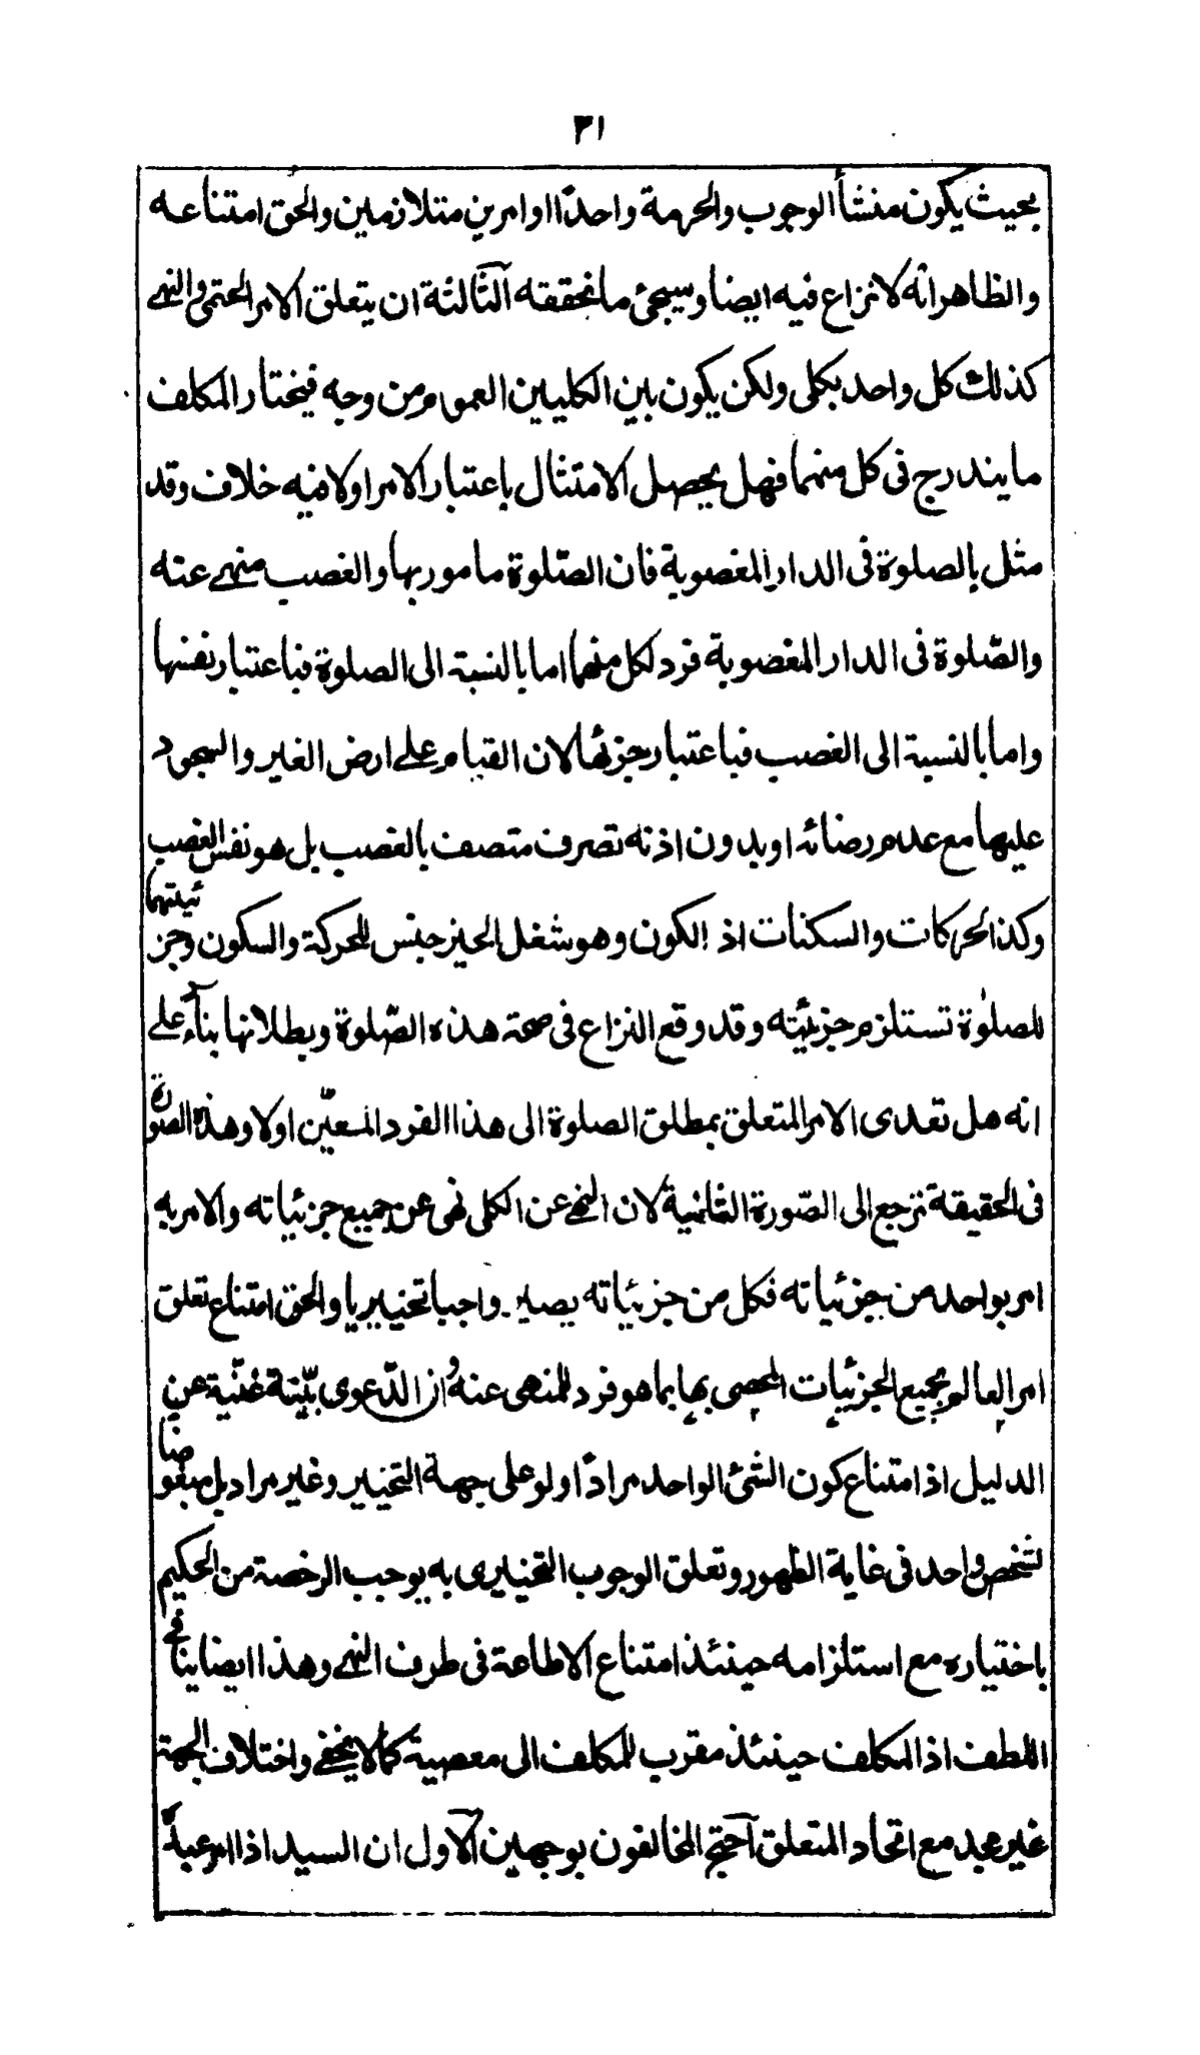 ٣١
بحيث يكون منشأ الوجوب والحرمة واحدًا او امرين متلازمين والحق امتناعه
والظاهر انّه لا نزاع فيه ايضا وسيجئ ما نحققه الثّالثة ان يتعلق الامر الحتمى والنهے
كذلك كل واحد بكلى ولكن يكون بين الكليين العموم من وجه فيختار المكلف
ما يندرج فى كل منهما فهل يحصل الامتثال باعتبار الامر اولا فيه خلاف وقد
مثل بالصلوة فى الدار المغصوبة فان الصّلوة مامور بها والغصب منهے عنه
والصّلوة فى الدار المغضوبة فرد لكل منهما اما بالنسبة الى الصلوة فباعتبار نفسها
واما بالنسبة الى الغصب فباعتبار جزئها لان القيام علے ارض الغير والسجود
عليها مع عدم رضائه او بدون اذنه تصرف متصف بالغصب بل هو نفس الغصب
وكذا الحركات والسكنات اذ الكون وهو شغل الحيز جنس للحركة والسكون وجزئيتهما
للصلوٰة تستلزم جزئيّته وقد وقع النزاع فى صحة هذه الصّلوة وبطلانها بنآءً علے
انه هل تعدى الامر المتعلق بمطلق الصلوة الى هذا الفرد المعيّن اولا وهذه الصورة
فى الحقيقة ترجع الى الصّورة الثانية لان النهے عن الكلى نهى عن جميع جزئياته والامر به
امر بواحد من جزئياته فكل من جزئياته يصير واجبا تخييريا والحق امتناع تعلق
امر العالم بجميع الجزئيات المحصى بها بما هو فرد للمنهى عنه وان الدّعوى بيّنة غنيّة عن
الدليل اذ امتناع كون الشئ الواحد مرادًا ولو على جهة التخيير وغير مراد بل مبغوضا
لشخص واحد فى غاية الظهور وتعلق الوجوب التخييرى به يوجب الرخصة من الحكيم
باختياره مع استلزامه حينئذ امتناع الاطاعة فى طرف النهے وهذا ايضا ينافے
اللطف اذ المكلف حينئذ مقرب للمكلف الى معصية كما لا يخفے واختلاف الجهة
غير مجد مع اتحاد المتعلق آحتج المخالفون بوجهين الآول ان السيد اذا امر عبدہ